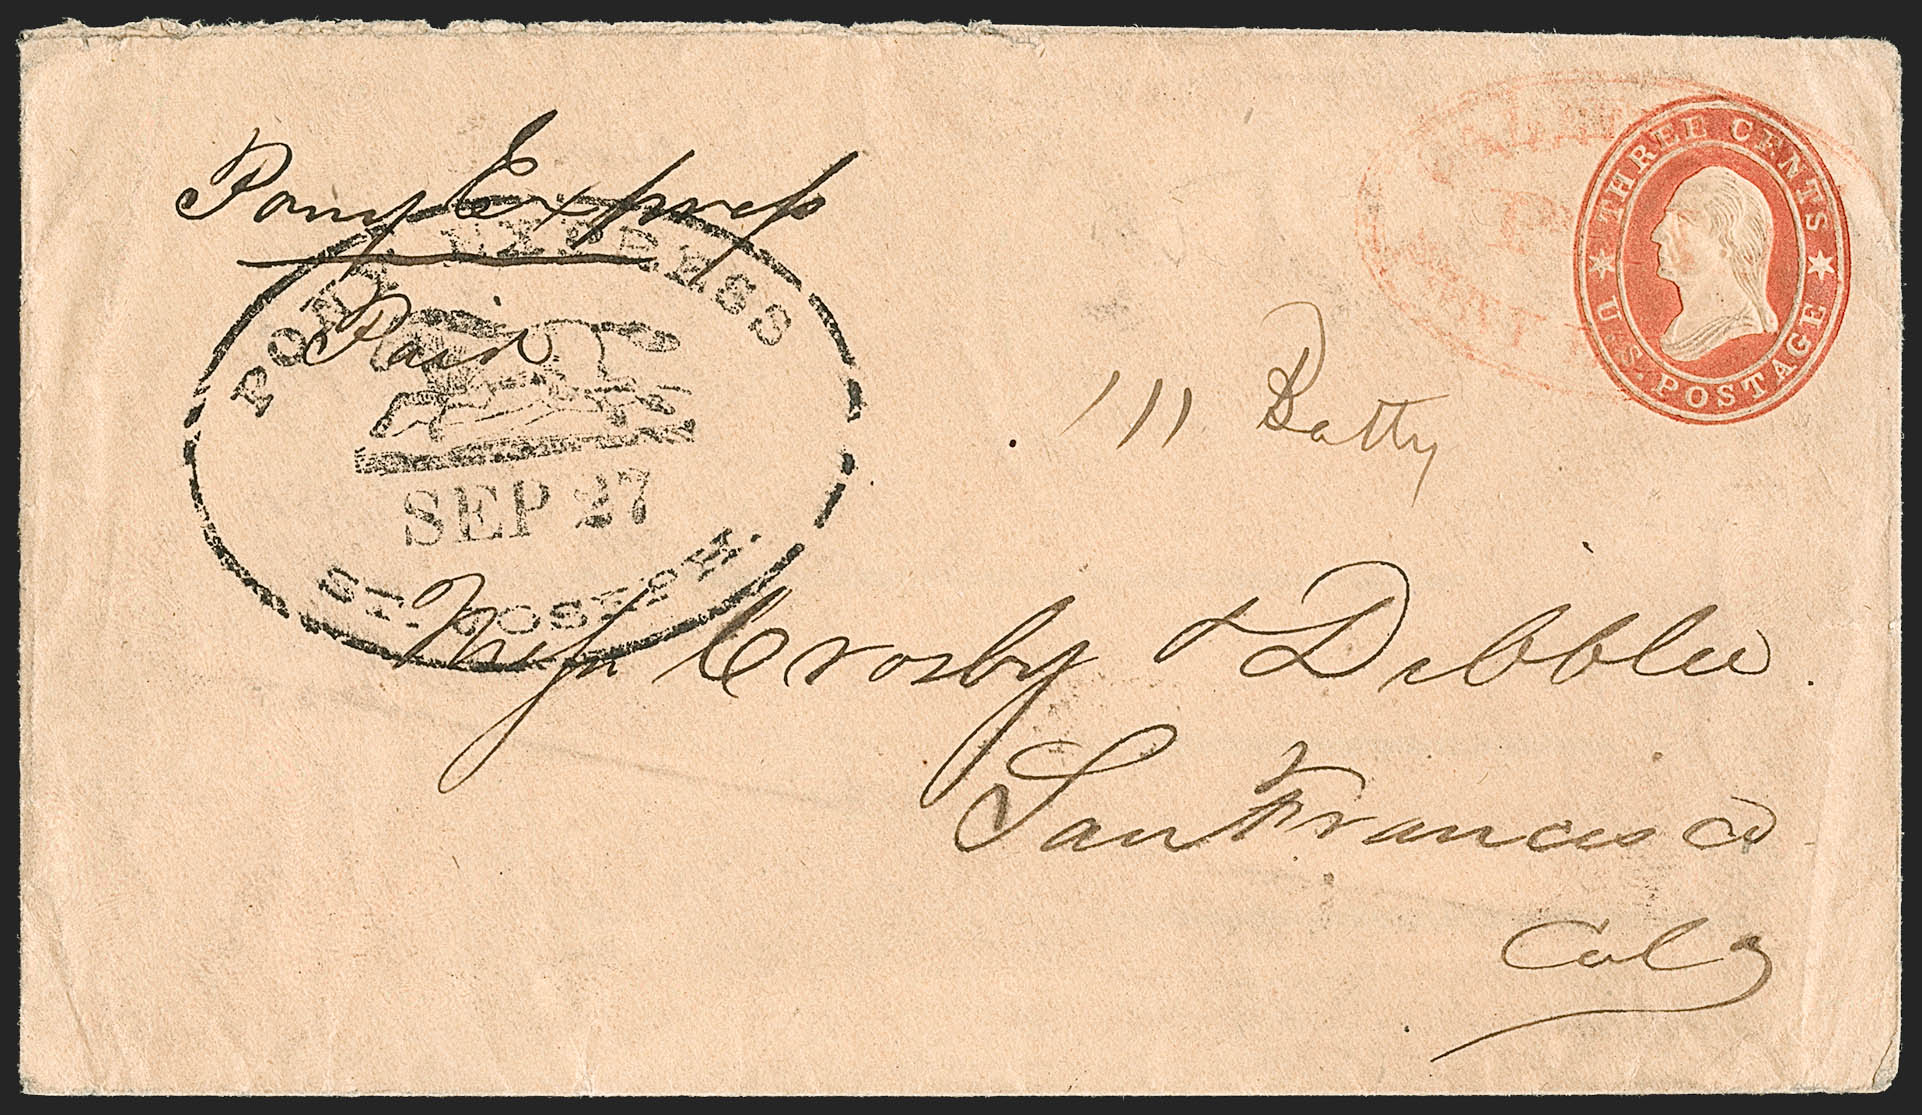 Pony Express
Paid
PONY EXPRESS
SEP 27
ST. JOSEPH.
THREE CENTS
U.S. POSTAGE
111 Batty
Messrs Crosby & Dibblee.
San Francisco
Cal